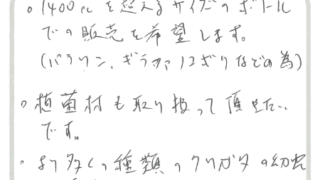 ○ 1400ccを超えるサイズのボトル
での販売を希望します。
(パラワン、ギラファノコギリなどの為)
○ 植菌材も取り扱って頂きたい
です。
○ より多くの種類のクワガタの幼虫